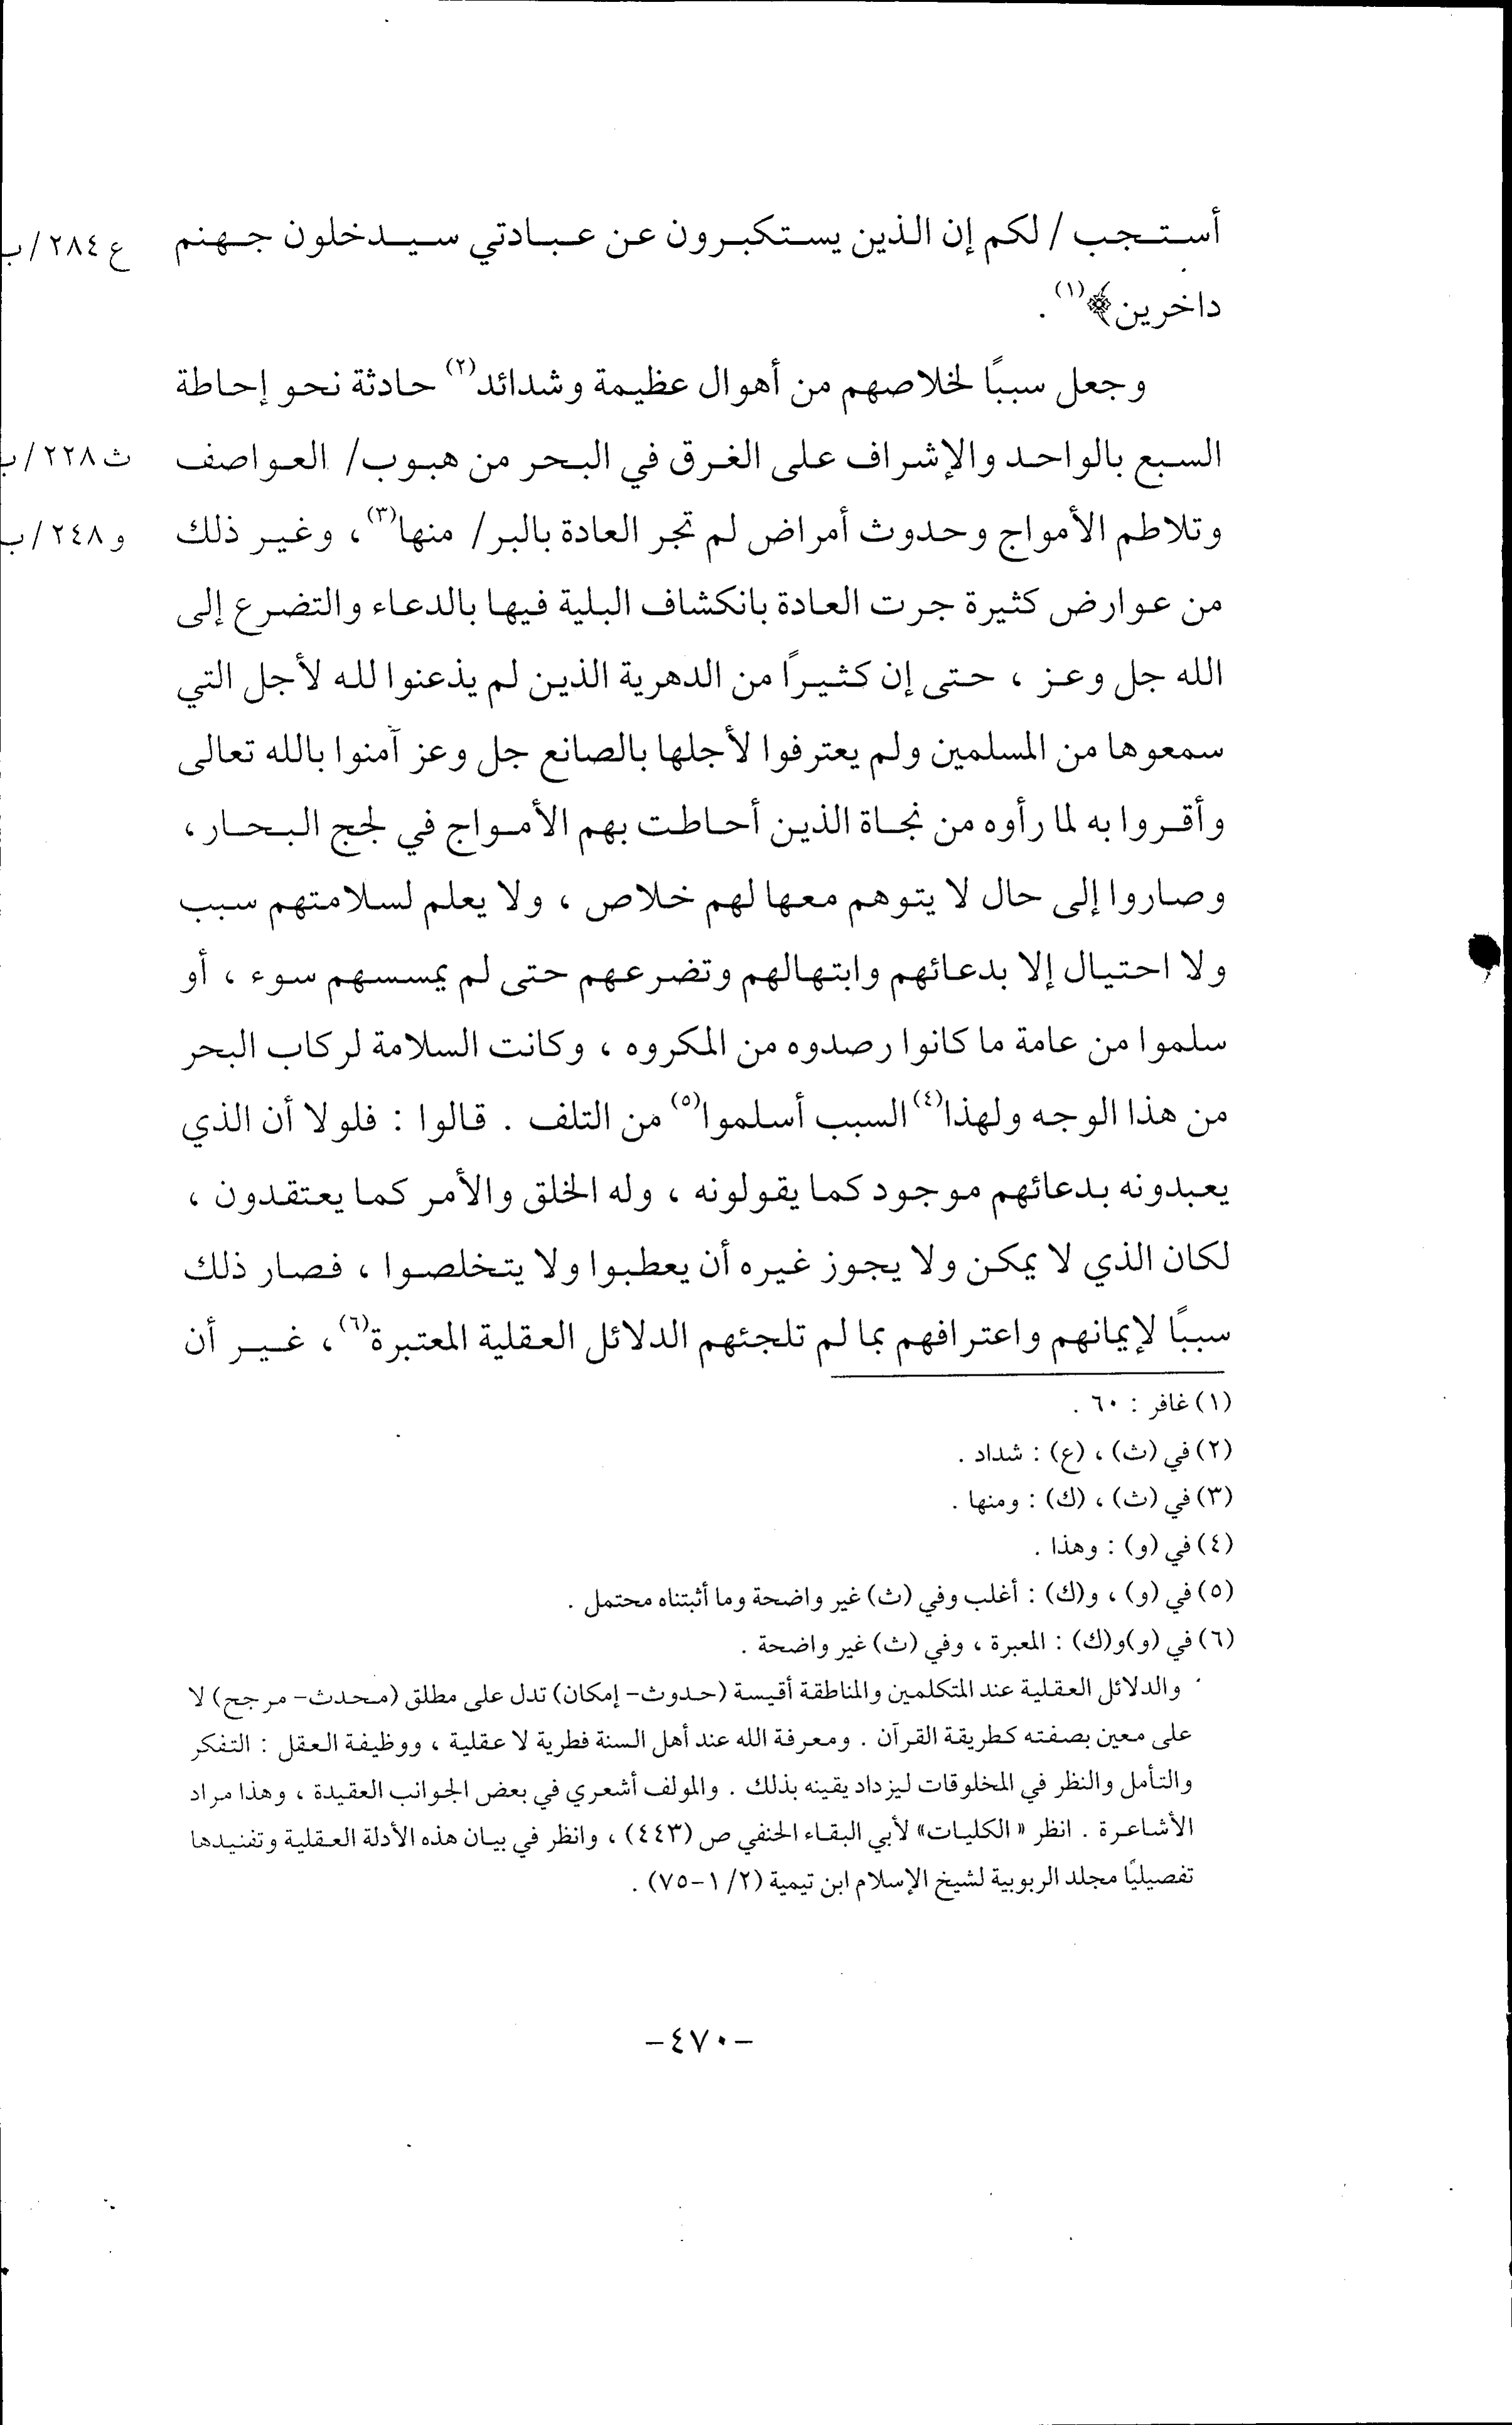 أستجب / لكم إن الذين يستكبرون عن عبادتي سيدخلون جهنم ع ٢٨٤ / ب
داخرين﴾(١) .
وجعل سببًا لخلاصهم من أهوال عظيمة وشدائد(٢) حادثة نحو إحاطة
السبع بالواحد والإشراف على الغرق في البحر من هبوب/ العواصف ث ٢٢٨ / ب
وتلاطم الأمواج وحدوث أمراض لم تجر العادة بالبر/ منها(٣) ، وغير ذلك و ٢٤٨ / ب
من عوارض كثيرة جرت العادة بانكشاف البلية فيها بالدعاء والتضرع إلى
الله جل وعز ، حتى إن كثيرًا من الدهرية الذين لم يذعنوا لله لأجل التي
سمعوها من المسلمين ولم يعترفوا لأجلها بالصانع جل وعز آمنوا بالله تعالى
وأقروا به لما رأوه من نجاة الذين أحاطت بهم الأمواج في لجج البحار ،
وصاروا إلى حال لا يتوهم معها لهم خلاص ، ولا يعلم لسلامتهم سبب
ولا احتيال إلا بدعائهم وابتهالهم وتضرعهم حتى لم يمسسهم سوء ، أو
سلموا من عامة ما كانوا رصدوه من المكروه ، وكانت السلامة لركاب البحر
من هذا الوجه ولهذا(٤) السبب أسلموا(٥) من التلف . قالوا : فلولا أن الذي
يعبدونه بدعائهم موجود كما يقولونه ، وله الخلق والأمر كما يعتقدون ،
لكان الذي لا يمكن ولا يجوز غيره أن يعطبوا ولا يتخلصوا ، فصار ذلك
سببًا لإيمانهم واعترافهم بما لم تلجئهم الدلائل العقلية المعتبرة(٦) ، غير أن
(١) غافر : ٦٠ .
(٢) في (ث) ، (ع) : شداد .
(٣) في (ث) ، (ك) : ومنها .
(٤) في (و) : وهذا .
(٥) في (و) ، و(ك) : أغلب وفي (ث) غير واضحة وما أثبتناه محتمل .
(٦) في (و)و(ك) : المعبرة ، وفي (ث) غير واضحة .
والدلائل العقلية عند المتكلمين والمناطقة أقيسة (حدوث- إمكان) تدل على مطلق (محدث- مرجح) لا
على معين بصفته كطريقة القرآن . ومعرفة الله عند أهل السنة فطرية لا عقلية ، ووظيفة العقل : التفكر
والتأمل والنظر في المخلوقات ليزداد يقينه بذلك . والمولف أشعري في بعض الجوانب العقيدة ، وهذا مراد
الأشاعرة . انظر « الكليات» لأبي البقاء الحنفي ص (٤٤٣) ، وانظر في بيان هذه الأدلة العقلية وتفنيدها
تفصيليًا مجلد الربوبية لشيخ الإسلام ابن تيمية (٢/ ١-٧٥) .
-٤٧٠-